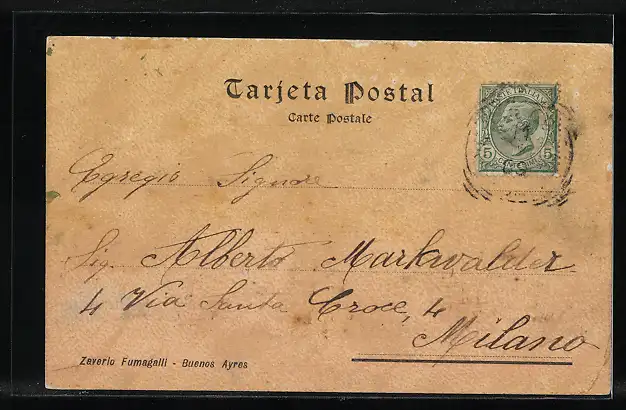 Tarjeta Postal
Carte Postale
POSTE ITALIANE
5 5
Egregio Signore
Sig. Alberto Markwalder
4 Via Santa Croce, 4
Milano
Zaverio Fumagalli - Buenos Ayres